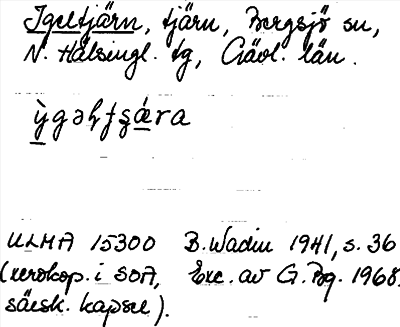 Igeltjärn, tjärn, Bergsjö sn,
N. Hälsingl. tg, Gävl. län.
ỳgəḥƭʂǽra
ULMA 15300 B. Wadin 1941, s. 36
(xerokop. i SOA, Exc. av G. Bg. 1968.
särsk. kapsel).